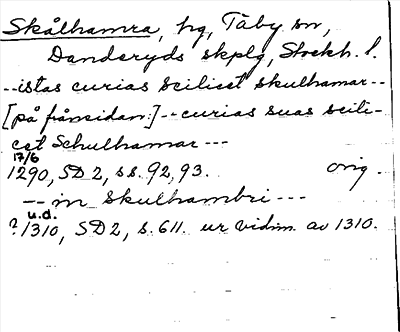 Skålhamra, hg, Täby sn,
Danderyds skplg, Stockh. l.
--istas curias scilicet skulhamar--
[på frånsidan:]--curias suas scili-
cet Schulhamar---
17/6
1290, SD 2, ss. 92, 93. orig.
--in Skulhambri---
u.d.
? 1310, SD 2, s. 611. ur vidim. av 1310.